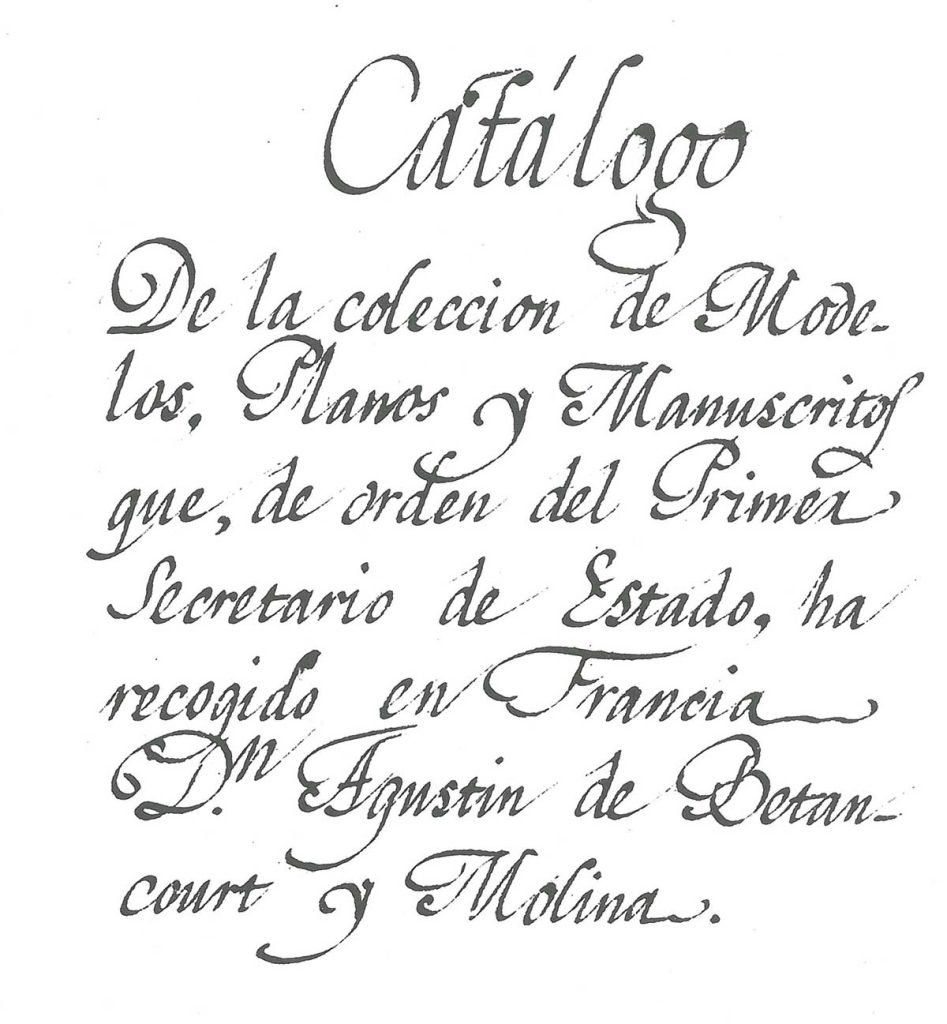 Catálogo
De la coleccion de Mode-
los, Planos y Manuscritos
que, de orden del Primer
Secretario de Estado, ha
recogido en Francia
D.ⁿ Agustin de Betan-
court y Molina.